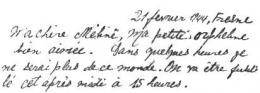 21 février 1944, Fresne
Ma chère Méliné, ma petite orpheline
bien aimée. Dans quelques heures je
ne serai plus de ce monde. On va être fusil-
lé cet après midi à 15 heures.